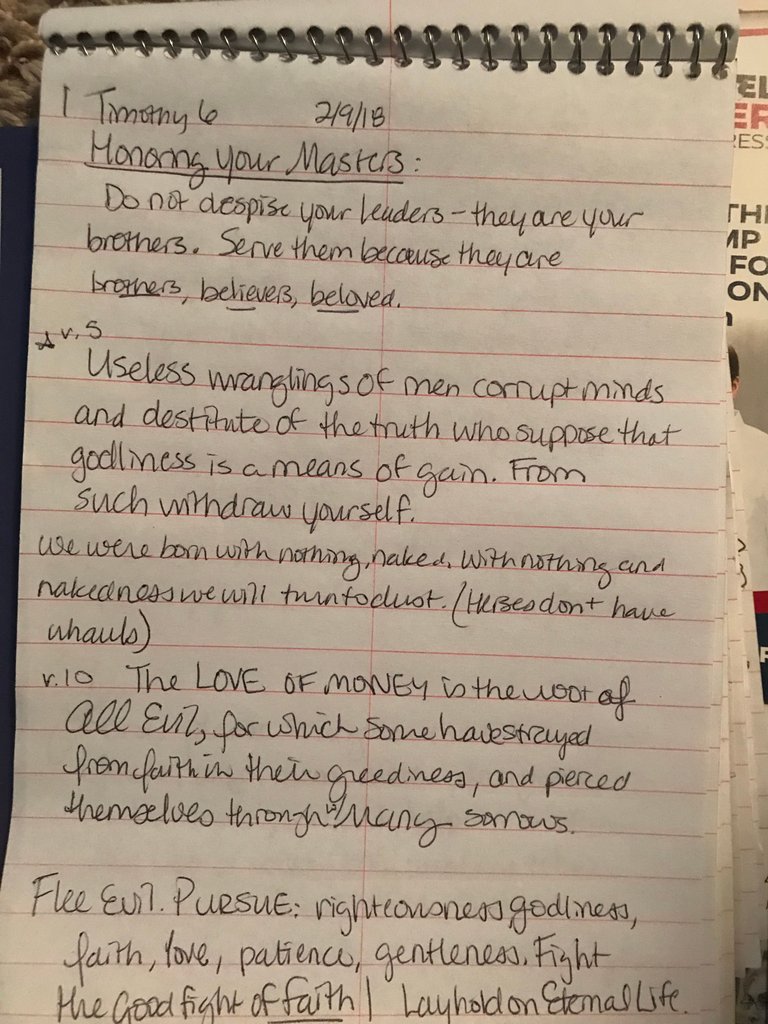 1 Timothy 6 2/9/18
Honoring Your Masters:
Do not despise your leaders - they are your
brothers. Serve them because they are
brothers, believers, beloved.
v. 5
Useless wranglings of men corrupt minds
and destitute of the truth who suppose that
godliness is a means of gain. From
such withdraw yourself.
We were born with nothing, naked. With nothing and
nakedness we will turn to dust. (Herses don't have
uhauls)
v.10 The LOVE OF MONEY is the root of
All Evil, for which some have strayed
from faith in their greediness, and pierced
themselves through w/ Many sorrows.
Flee Evil. PURSUE: righteousness, godliness,
faith, love, patience, gentleness. Fight
the Good fight of faith! Lay hold on Eternal Life.
EL
ER
RESS
THE
MP
FO
ON